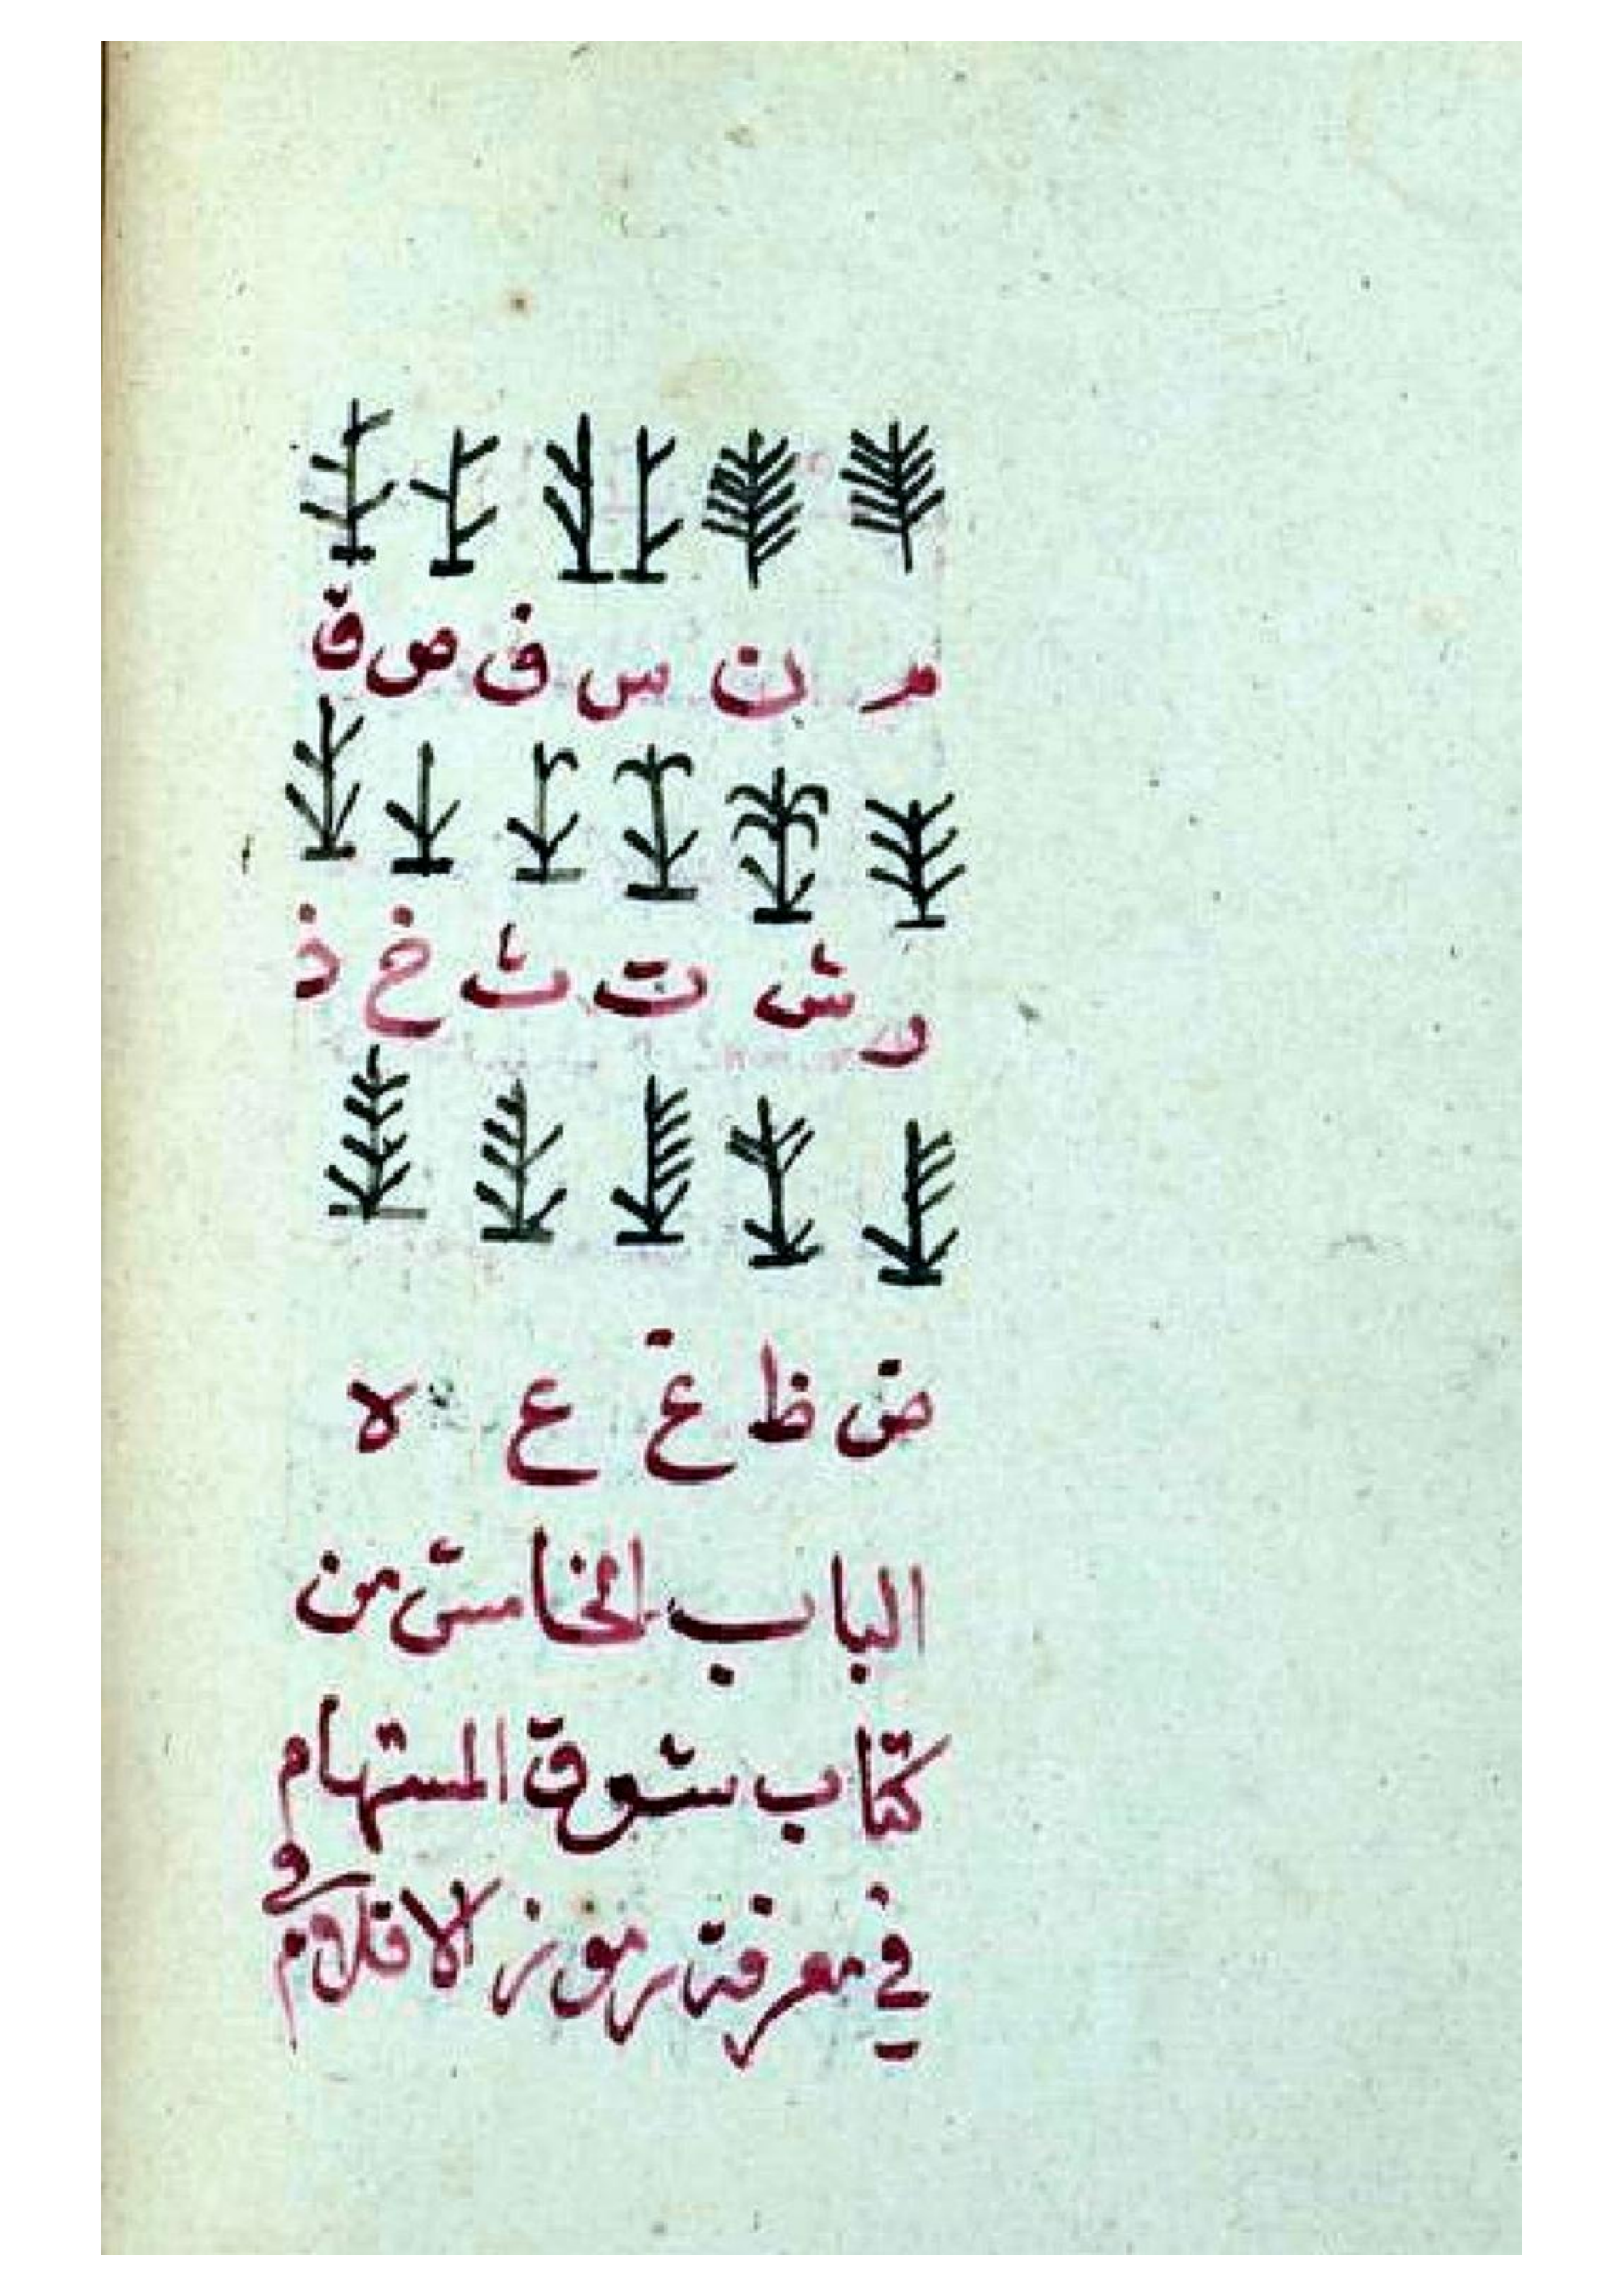 م ن س ف ص ق
ر ش ت ث خ ذ
ض ظ غ ع لا
الباب الخامس من
كتاب شوق المستهام
في معرفة رموز الاقلام